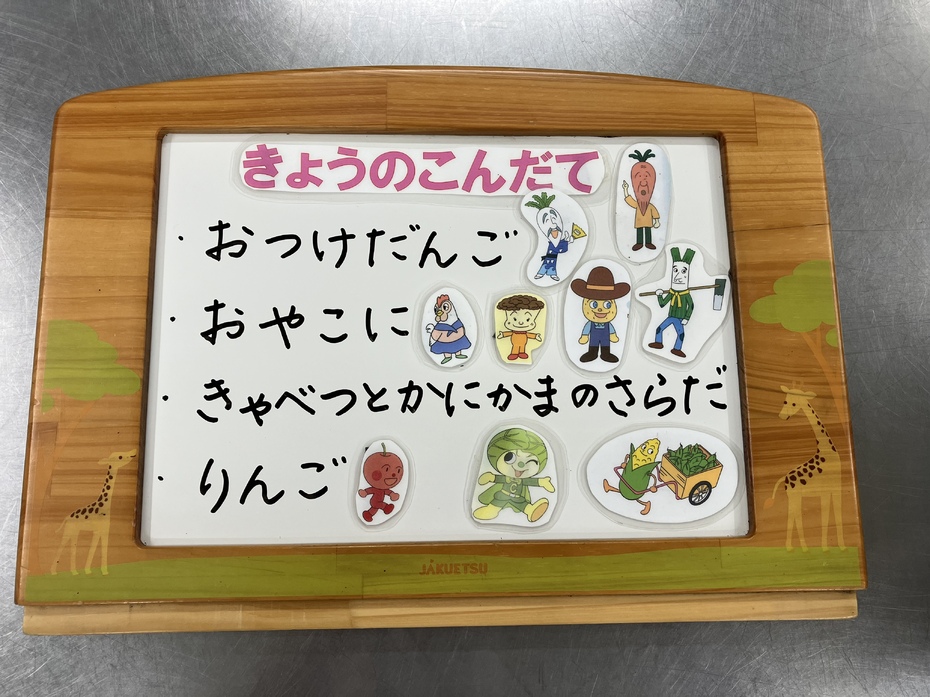 きょうのこんだて
・おつけだんご
・おやこに
・きゃべつとかにかまのさらだ
・りんご
JAKUETSU